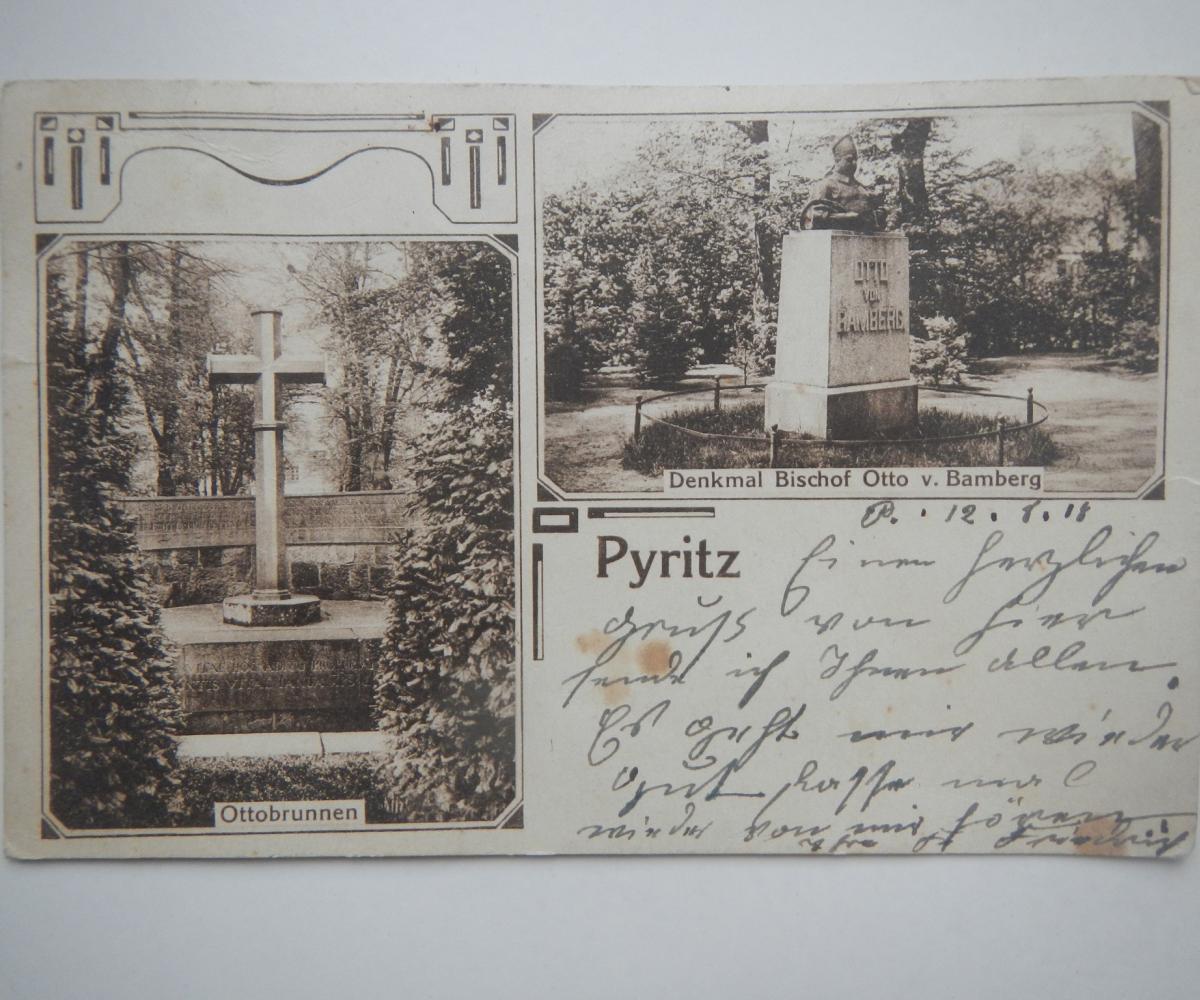 OTTO
VON
BAMBERG
Denkmal Bischof Otto v. Bamberg
Ottobrunnen
Pyritz
P. · 12. 8. 18
Einen herzlichen
Gruß von hier
sende ich Ihnen allen.
Es geht mir wieder
gut lasse mal
wieder von mir hören
Friedrich